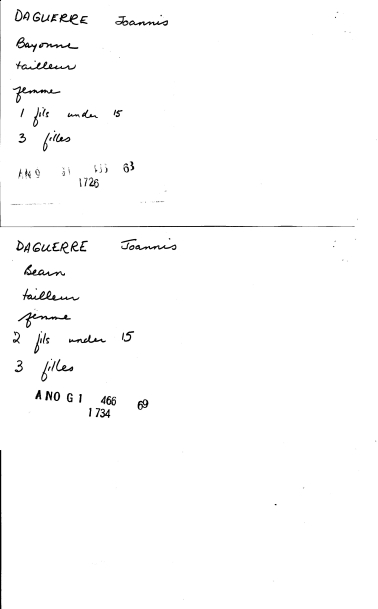 DAGUERRE Joannis
Bayonne
tailleur
femme
1 fils under 15
3 filles
63
1726
DAGUERRE Joannis
Bearn
tailleur
femme
2 fils under 15
3 filles
ANO G1 466 69
1734